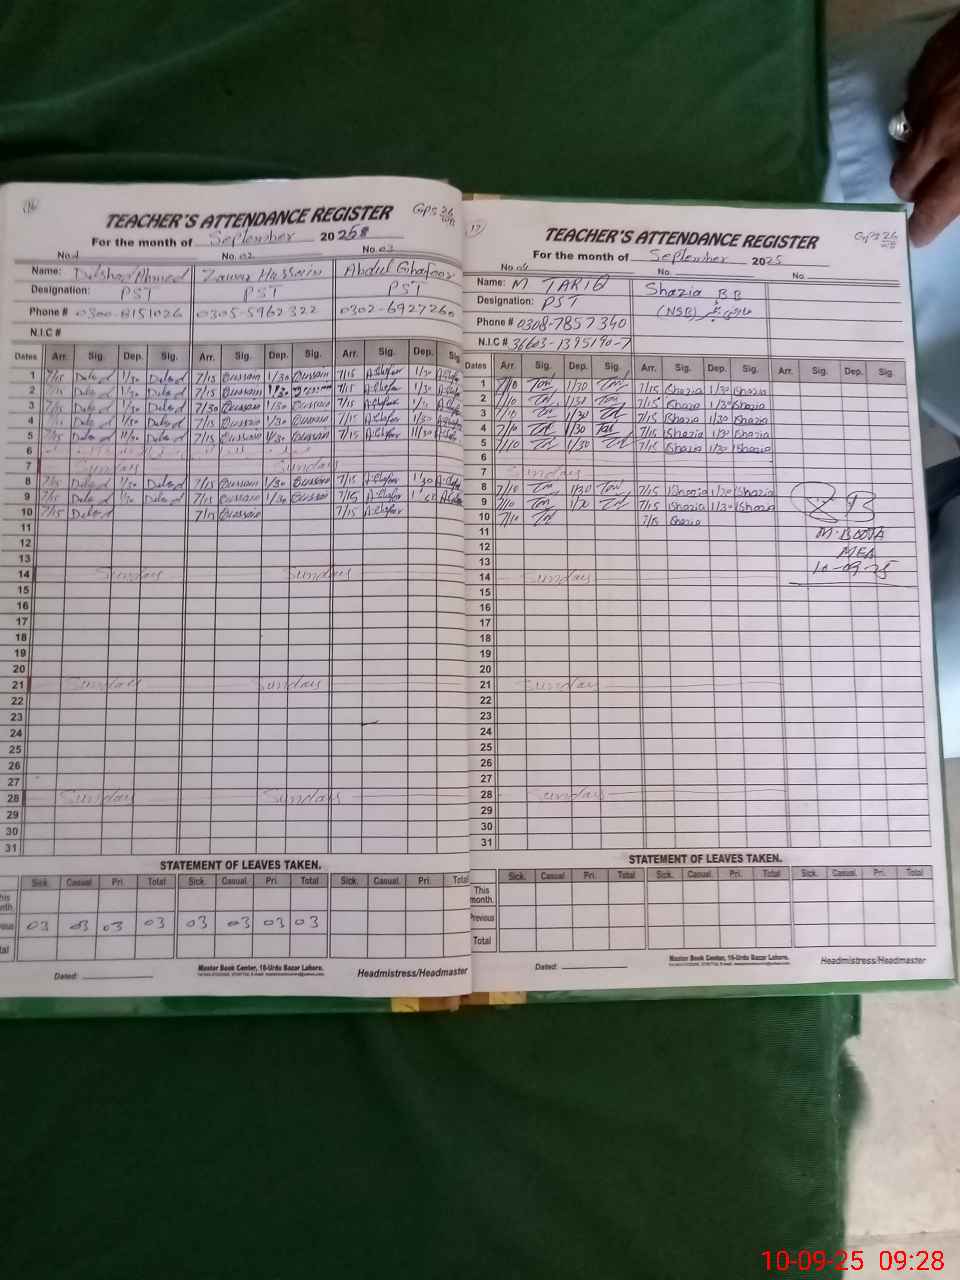 16
TEACHER'S ATTENDANCE REGISTER
GPS 26/WB
For the month of September 2025
No. 1 No. 02 No. 03
Name: Dilshad Ahmed Zawar Hussain Abdul Ghafoor
Designation: PST PST PST
Phone # 0300-8151026 0305-5962322 0302-692726
N.I.C #
Dates Arr. Sig. Dep. Sig. Arr. Sig. Dep. Sig. Arr. Sig. Dep. Sig.
1 7/15 1/30 7/15 Hussain 1/30 Hussain 7/15 A.Ghafoor 1/30
2 7/15 1/30 7/15 Hussain 1/30 7/15 A.Ghafoor 1/30
3 7/15 1/30 7/30 Hussain 1/30 Hussain 7/15 A.Ghafoor
4 7/15 1/30 7/15 Hussain 1/30 Hussain 7/15 A.Ghafoor 1/30
5 7/15 11/30 7/15 Hussain 1/30 Hussain 7/15 A.Ghafoor 11/30
6
7 Sunday Sunday
8 7/15 1/30 7/15 Hussain 1/30 Hussain 7/15 A.Ghafoor 1/30
9 7/15 1/30 7/15 Hussain 1/30 Hussain 7/15 A.Ghafoor
10 7/15 7/15 Hussain 7/15 A.Ghafoor
11
12
13
14 Sunday Sunday
15
16
17
18
19
20
21 Sunday Sunday
22
23
24
25
26
27
28 Sunday Sunday
29
30
31
STATEMENT OF LEAVES TAKEN.
Sick. Casual. Pri. Total Sick. Casual. Pri. Total Sick. Casual. Pri. Total
03 03 03 03 03 03 03 03
Dated:
Master Book Center, 16-Urdu Bazar Lahore.
Headmistress/Headmaster
17
TEACHER'S ATTENDANCE REGISTER
GPS 26/WB
For the month of September 2025
No. 04 No. No.
Name: M TARIQ Shazia BB
Designation: PST (NSB)
Phone # 0308-7857340
N.I.C # 36603-1395190-7
Dates Arr. Sig. Dep. Sig. Arr. Sig. Dep. Sig. Arr. Sig. Dep. Sig.
1 7/10 1/30 7/15 Shazia 1/30 Shazia
2 7/10 1/30 7/15 Shazia 1/30 Shazia
3 7/10 1/30 7/15 Shazia 1/30 Shazia
4 7/10 1/30 7/15 Shazia 1/30 Shazia
5 7/10 1/30 7/15 Shazia 1/30 Shazia
6
7 Sunday
8 7/10 1/30 7/15 Shazia 1/30 Shazia
9 7/10 1/30 7/15 Shazia 1/30 Shazia
10 7/10 7/15 Shazia
M. BOOTA
MEA
10-09-25
11
12
13
14 Sunday
15
16
17
18
19
20
21 Sunday
22
23
24
25
26
27
28 Sunday
29
30
31
STATEMENT OF LEAVES TAKEN.
Sick. Casual Pri. Total Sick. Casual. Pri. Total Sick. Casual. Pri. Total
This month.
Previous
Total
Dated:
Master Book Center, 16-Urdu Bazar Lahore.
Headmistress/Headmaster
10-09-25 09:28